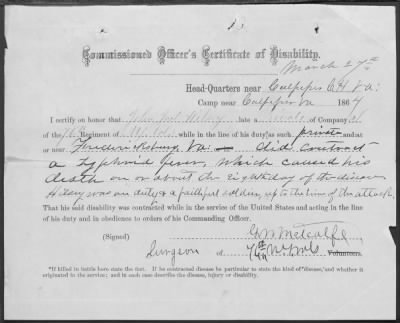 Commissioned Officer's Certificate of Disability.
March 27th
Head-Quarters near Culpeper C H Va:
Camp near Culpeper Va 1864
I certify on honor that late a of Company
of the Regiment of while in the line of his duty as such private and at
or near Fredericksburg Va did contract
a typhoid fever, which caused his
death on or about the eighth day of the disease
was on duty & a faithful soldier, up to the time of the attack,
That his said disability was contracted while in the service of the United States and acting in the line
of his duty and in obedience to orders of his Commanding Officer.
(Signed) G. W. Metcalfe
Surgeon of 76th N.Y. Vols Volunteers.
*If killed in battle here state the fact. If he contracted disease be particular to state the kind of disease, and whether it
originated in the service; and in each case describe the disease, injury or disability.